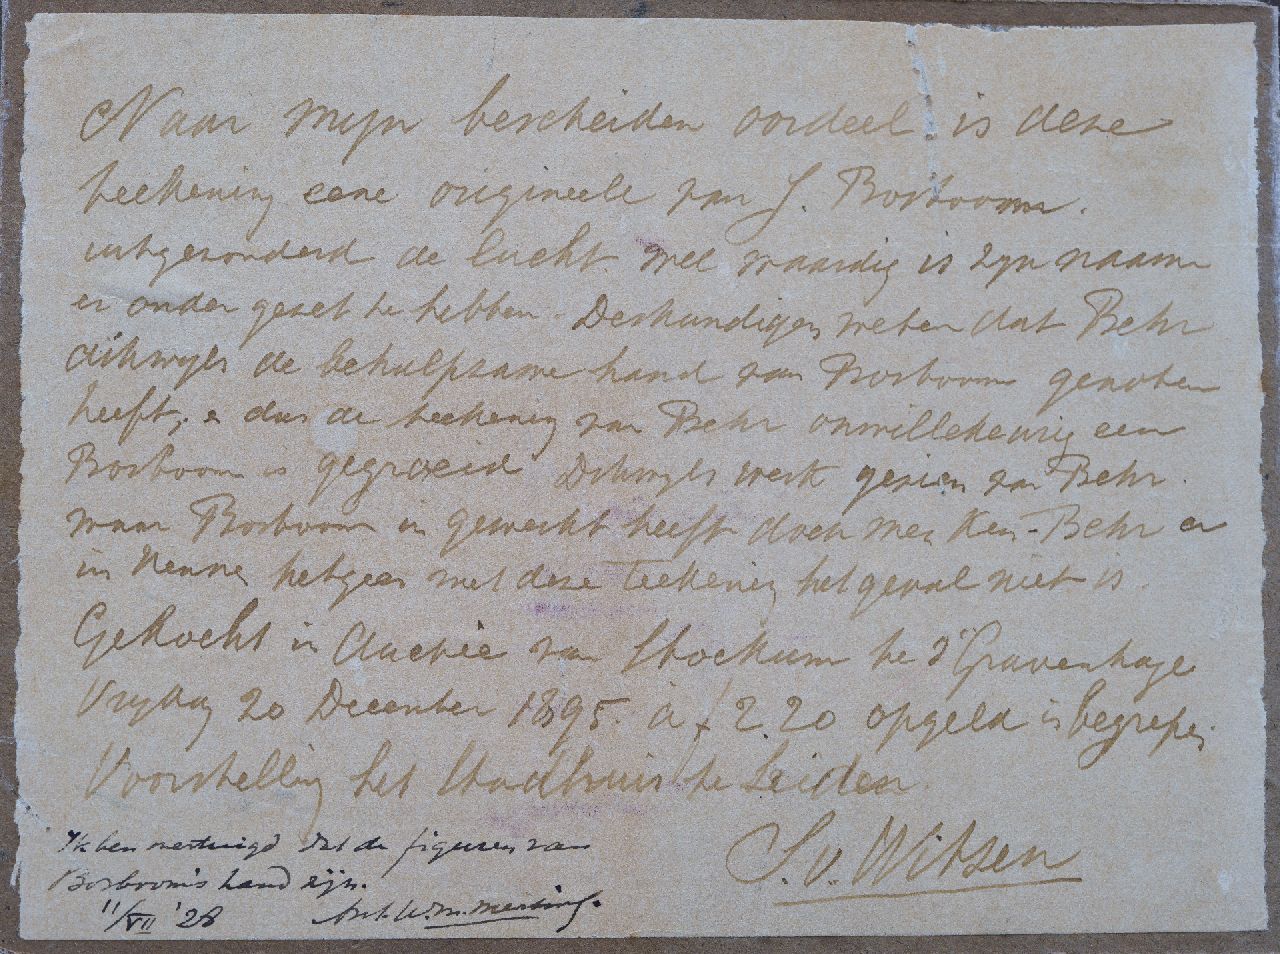 Naar mijn bescheiden oordeel is deze
teekening eene origineele van J. Bosboom.
uitgezonderd de lucht. wel waardig is zijn naam
er onder gezet te hebben. Deskundigen weten dat Behr
dikwijls de behulpzame hand van Bosboom genoten
heeft, & dus de teekening van Behr onwillekeurig een
Bosboom is gegroeid Dikwijls werk gezien van Behr.
waar Bosboom in gewerkt heeft doch men kan Behr er
in kennen hetgeen met deze teekening het geval niet is.
Gekocht in Auctie van Stockum te s'Gravenhage
Vrijdag 20 December 1895. à ƒ 2.20 opgeld is begrepen
Voorstelling het Stadhuis te Leiden.
S. v. Witsen
Ik ben overtuigd dat de figuren van
Bosboom's hand zijn.
11/VII '28